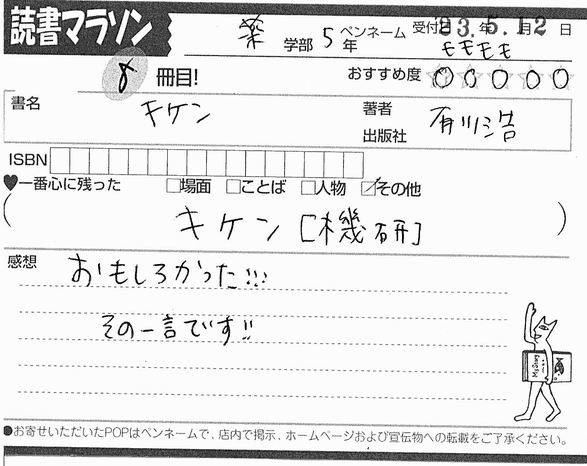 読書マラソン
薬 学部 5年 ペンネーム モモモモ 受付日 23年 5.月12日
8 冊目! おすすめ度 ○○○○○
書名 キケン 著者 有川浩
出版社
ISBN
♥一番心に残った □場面 □ことば □人物 ☑その他
(キケン[機研])
感想 おもしろかった!!!
その一言です!!
●お寄せいただいたPOPはペンネームで、店内で掲示、ホームページおよび宣伝物への転載をご了承ください。